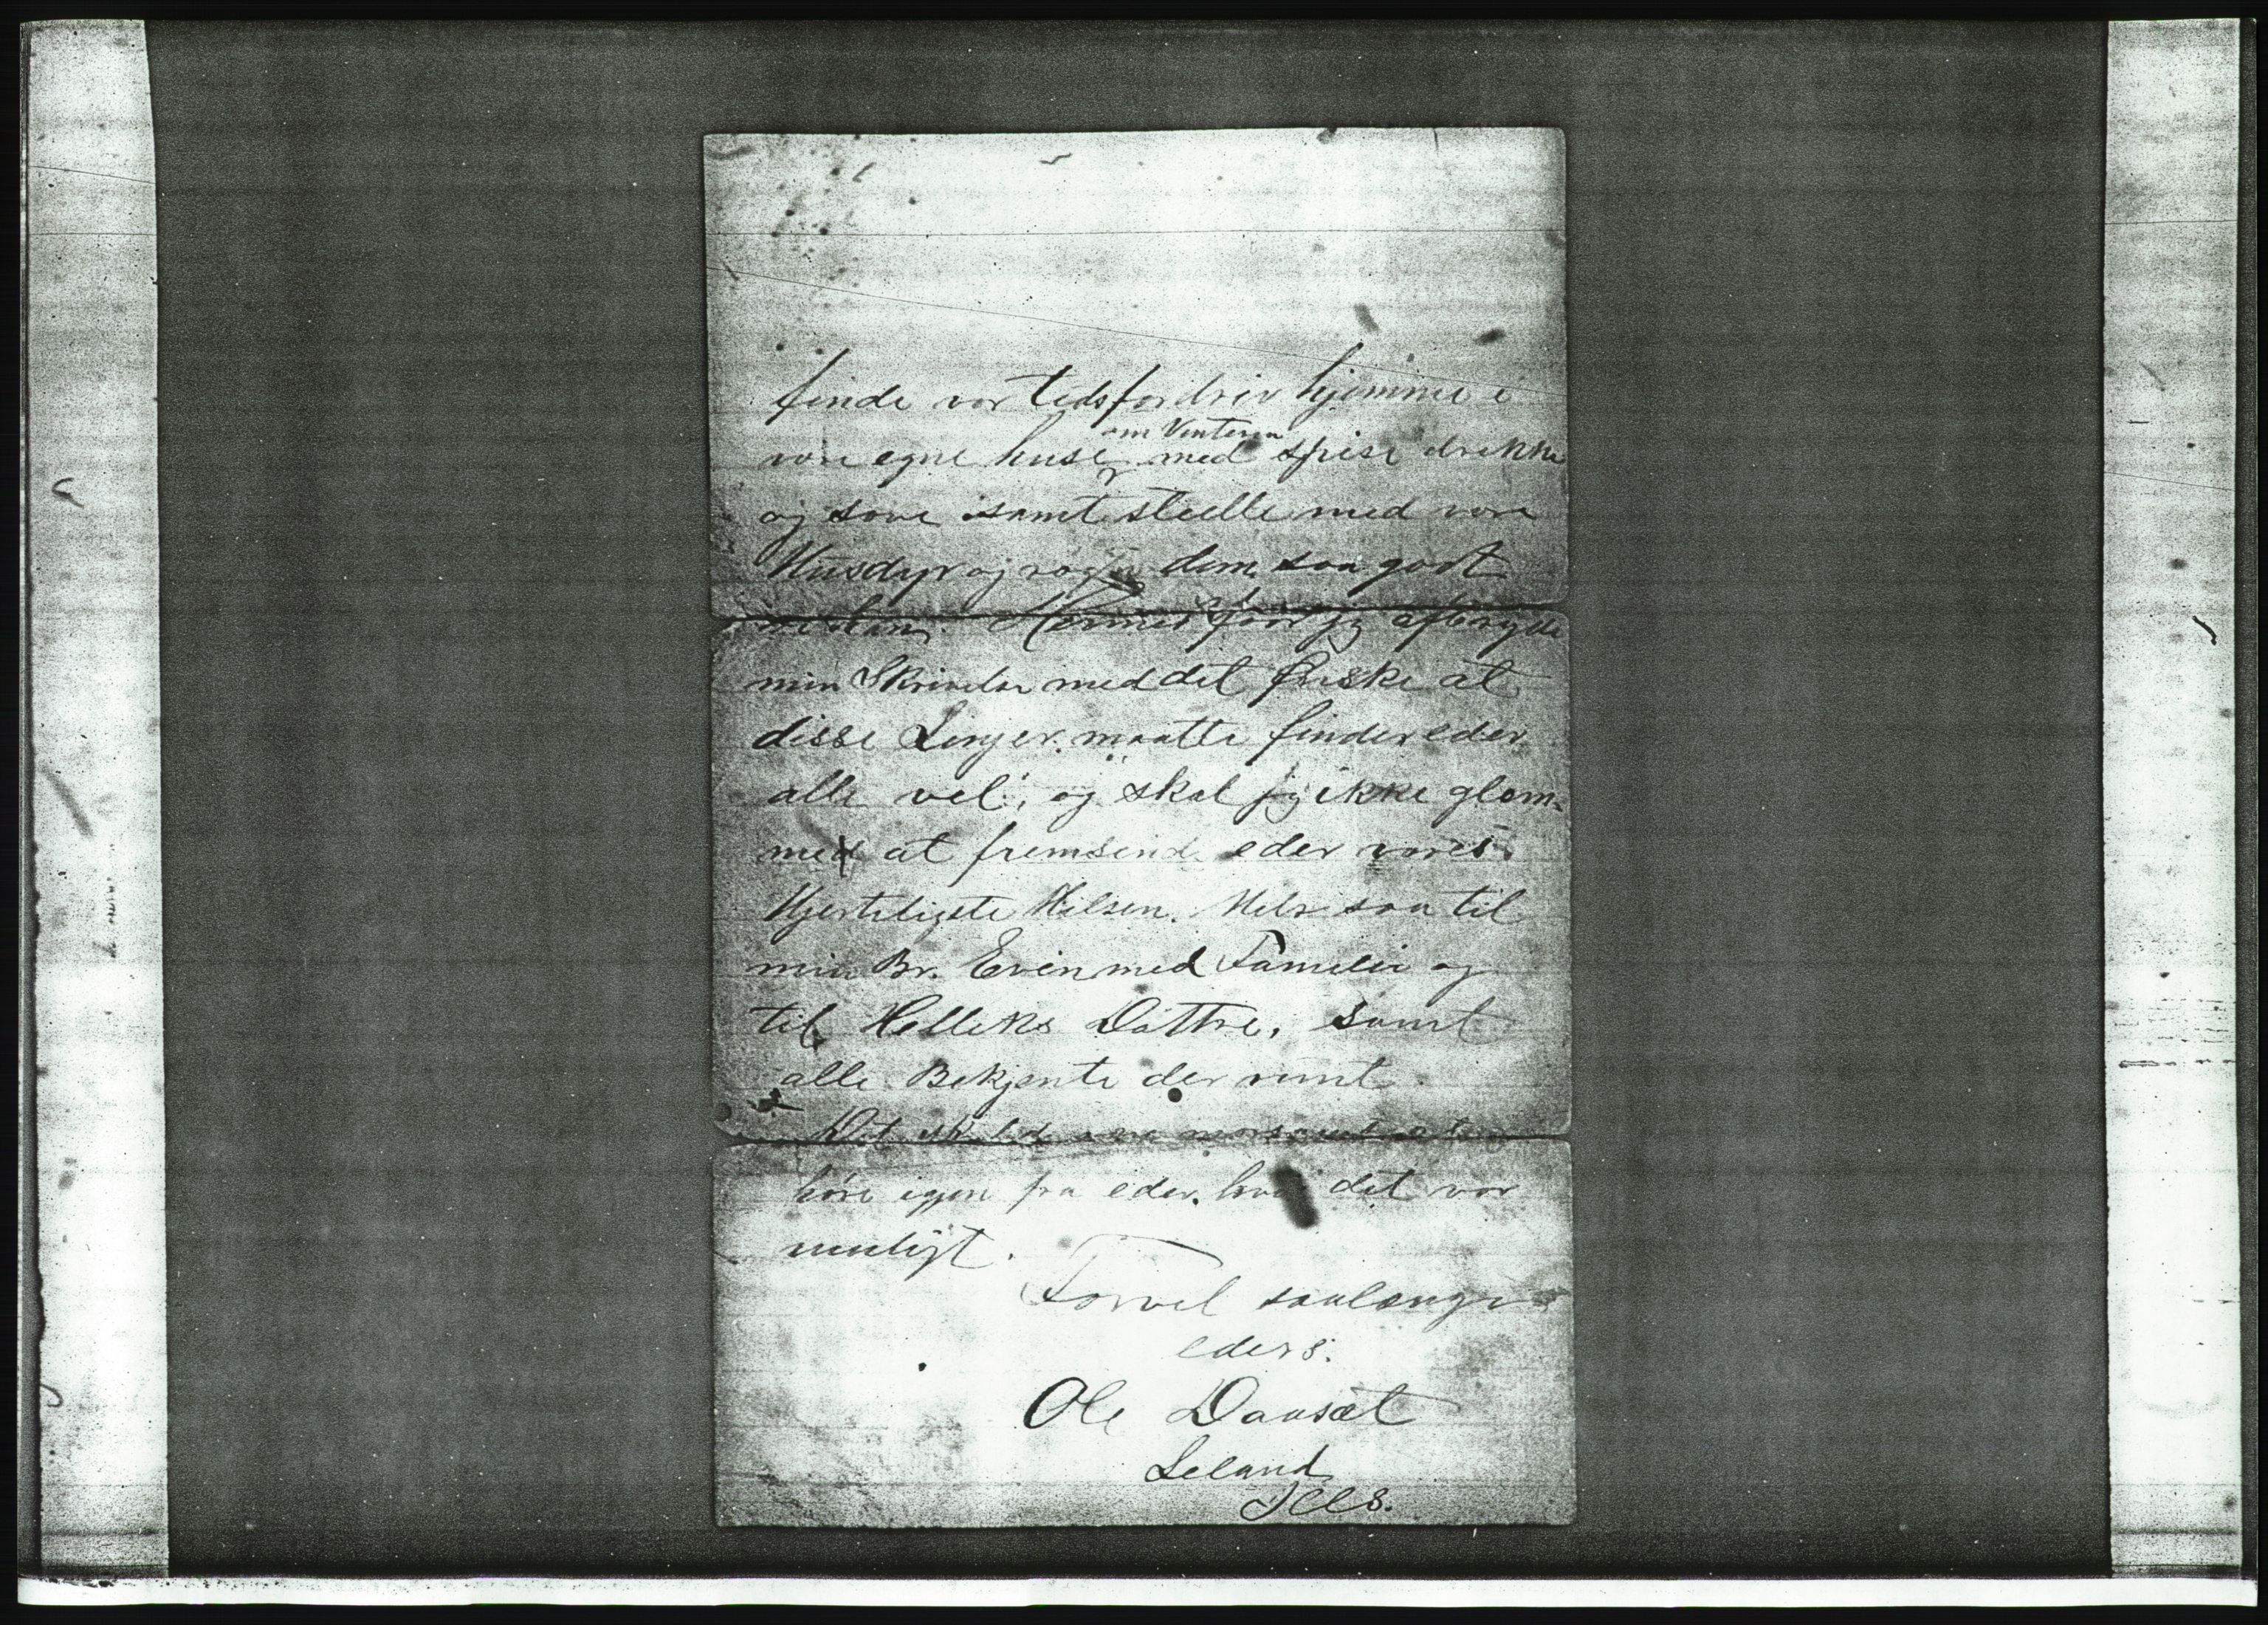 finde vor tidsfordriv hjemme i
om Vinteren
vore egne huse med spise drikke
og sove samt stelle med vore
Husdyr og røgte dem saa godt
vi kan. Hermed faar jeg afbryde
min Skrivelse med det Ønske at
disse Linjer maatte finder eder
alle vel, og skal jeg ikke glem-
me at fremsende eder vores
Hjerteligste Hilsen. Hels saa til
min Br. Even med Familie og
til Helleks Døttre, samt
alle Bekjente der runt
Det skulde være morsomt at
høre igjen fra eder. hvis det var
muligt.
Farvel saalænge
eders.
Ole Dausæt
Leland
Ills.